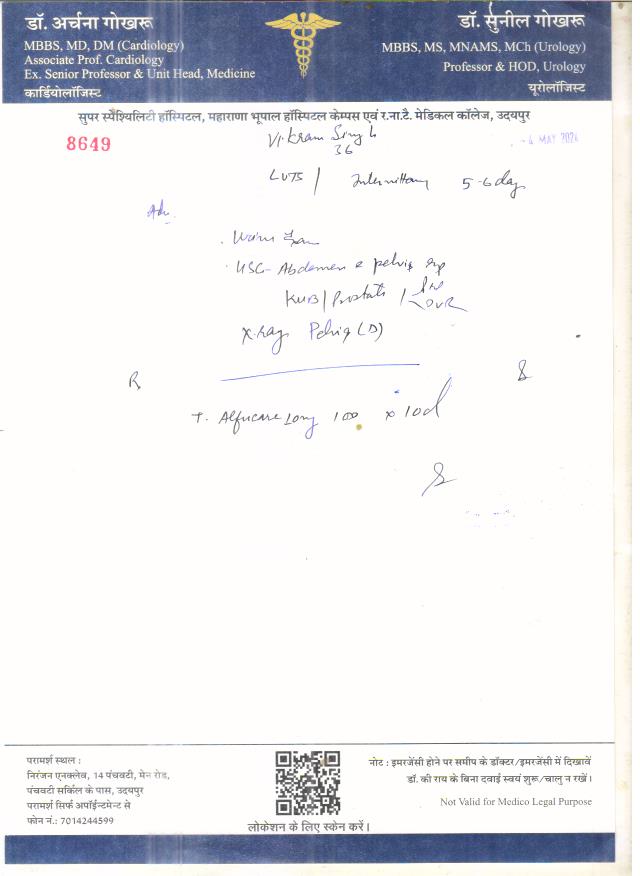 डॉ. अर्चना गोखरू
MBBS, MD, DM (Cardiology)
Associate Prof. Cardiology
Ex. Senior Professor & Unit Head, Medicine
कार्डियोलॉजिस्ट
डॉ. सुनील गोखरू
MBBS, MS, MNAMS, MCh (Urology)
Professor & HOD, Urology
यूरोलॉजिस्ट
सुपर स्पैश्यिलिटी हॉस्पिटल, महाराणा भूपाल हॉस्पिटल केम्पस एवं र.ना.टै. मेडिकल कॉलेज, उदयपुर
8649
Vikram Singh
36
4 MAY 2024
LUTS / 5-6 day
Adv.
USG- Abdomen & pelvis
KUB/Prostate / PVR
X-ray Pelvis (D)
R
T. Alfucare Long 100 x 10d
परामर्श स्थल :
निरंजन एनक्लेव, 14 पंचवटी, मेन रोड,
पंचवटी सर्किल के पास, उदयपुर
परामर्श सिर्फ अपॉईन्टमेन्ट से
फोन नं.: 7014244599
लोकेशन के लिए स्केन करें।
नोट : इमरजेंसी होने पर समीप के डॉक्टर/इमरजेंसी में दिखावें
डॉ. की राय के बिना दवाई स्वयं शुरू/चालु न रखें।
Not Valid for Medico Legal Purpose